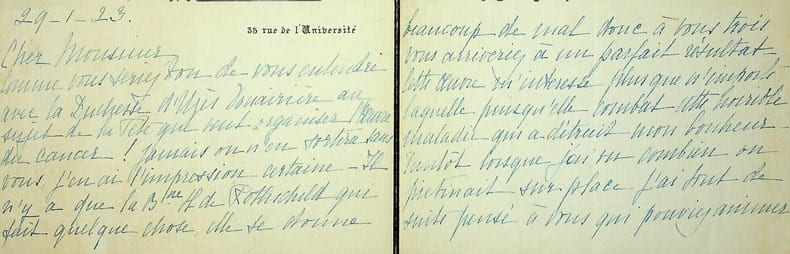 29-1-23.
35 rue de l'Université
Cher Monsieur
Comme vous seriez bon de vous entendre
avec la Duchesse d'Uzès Douairière au
sujet de la Fête que veut organiser l'Œuvre
du cancer ! jamais on n'en sortira sans
vous, j'en ai l'impression certaine - Il
n'y a que la Bne H de Rothschild qui
fait quelque chose, elle se donne
beaucoup de mal donc à vous trois
vous arriveriez à un parfait résultat
cette œuvre m'intéresse plus que n'importe
laquelle puisqu'elle combat cette horrible
maladie qui a détruit mon bonheur -
Tantôt lorsque j'ai vu combien on
piétinait sur place j'ai tout de
suite pensé à vous qui pouviez animer